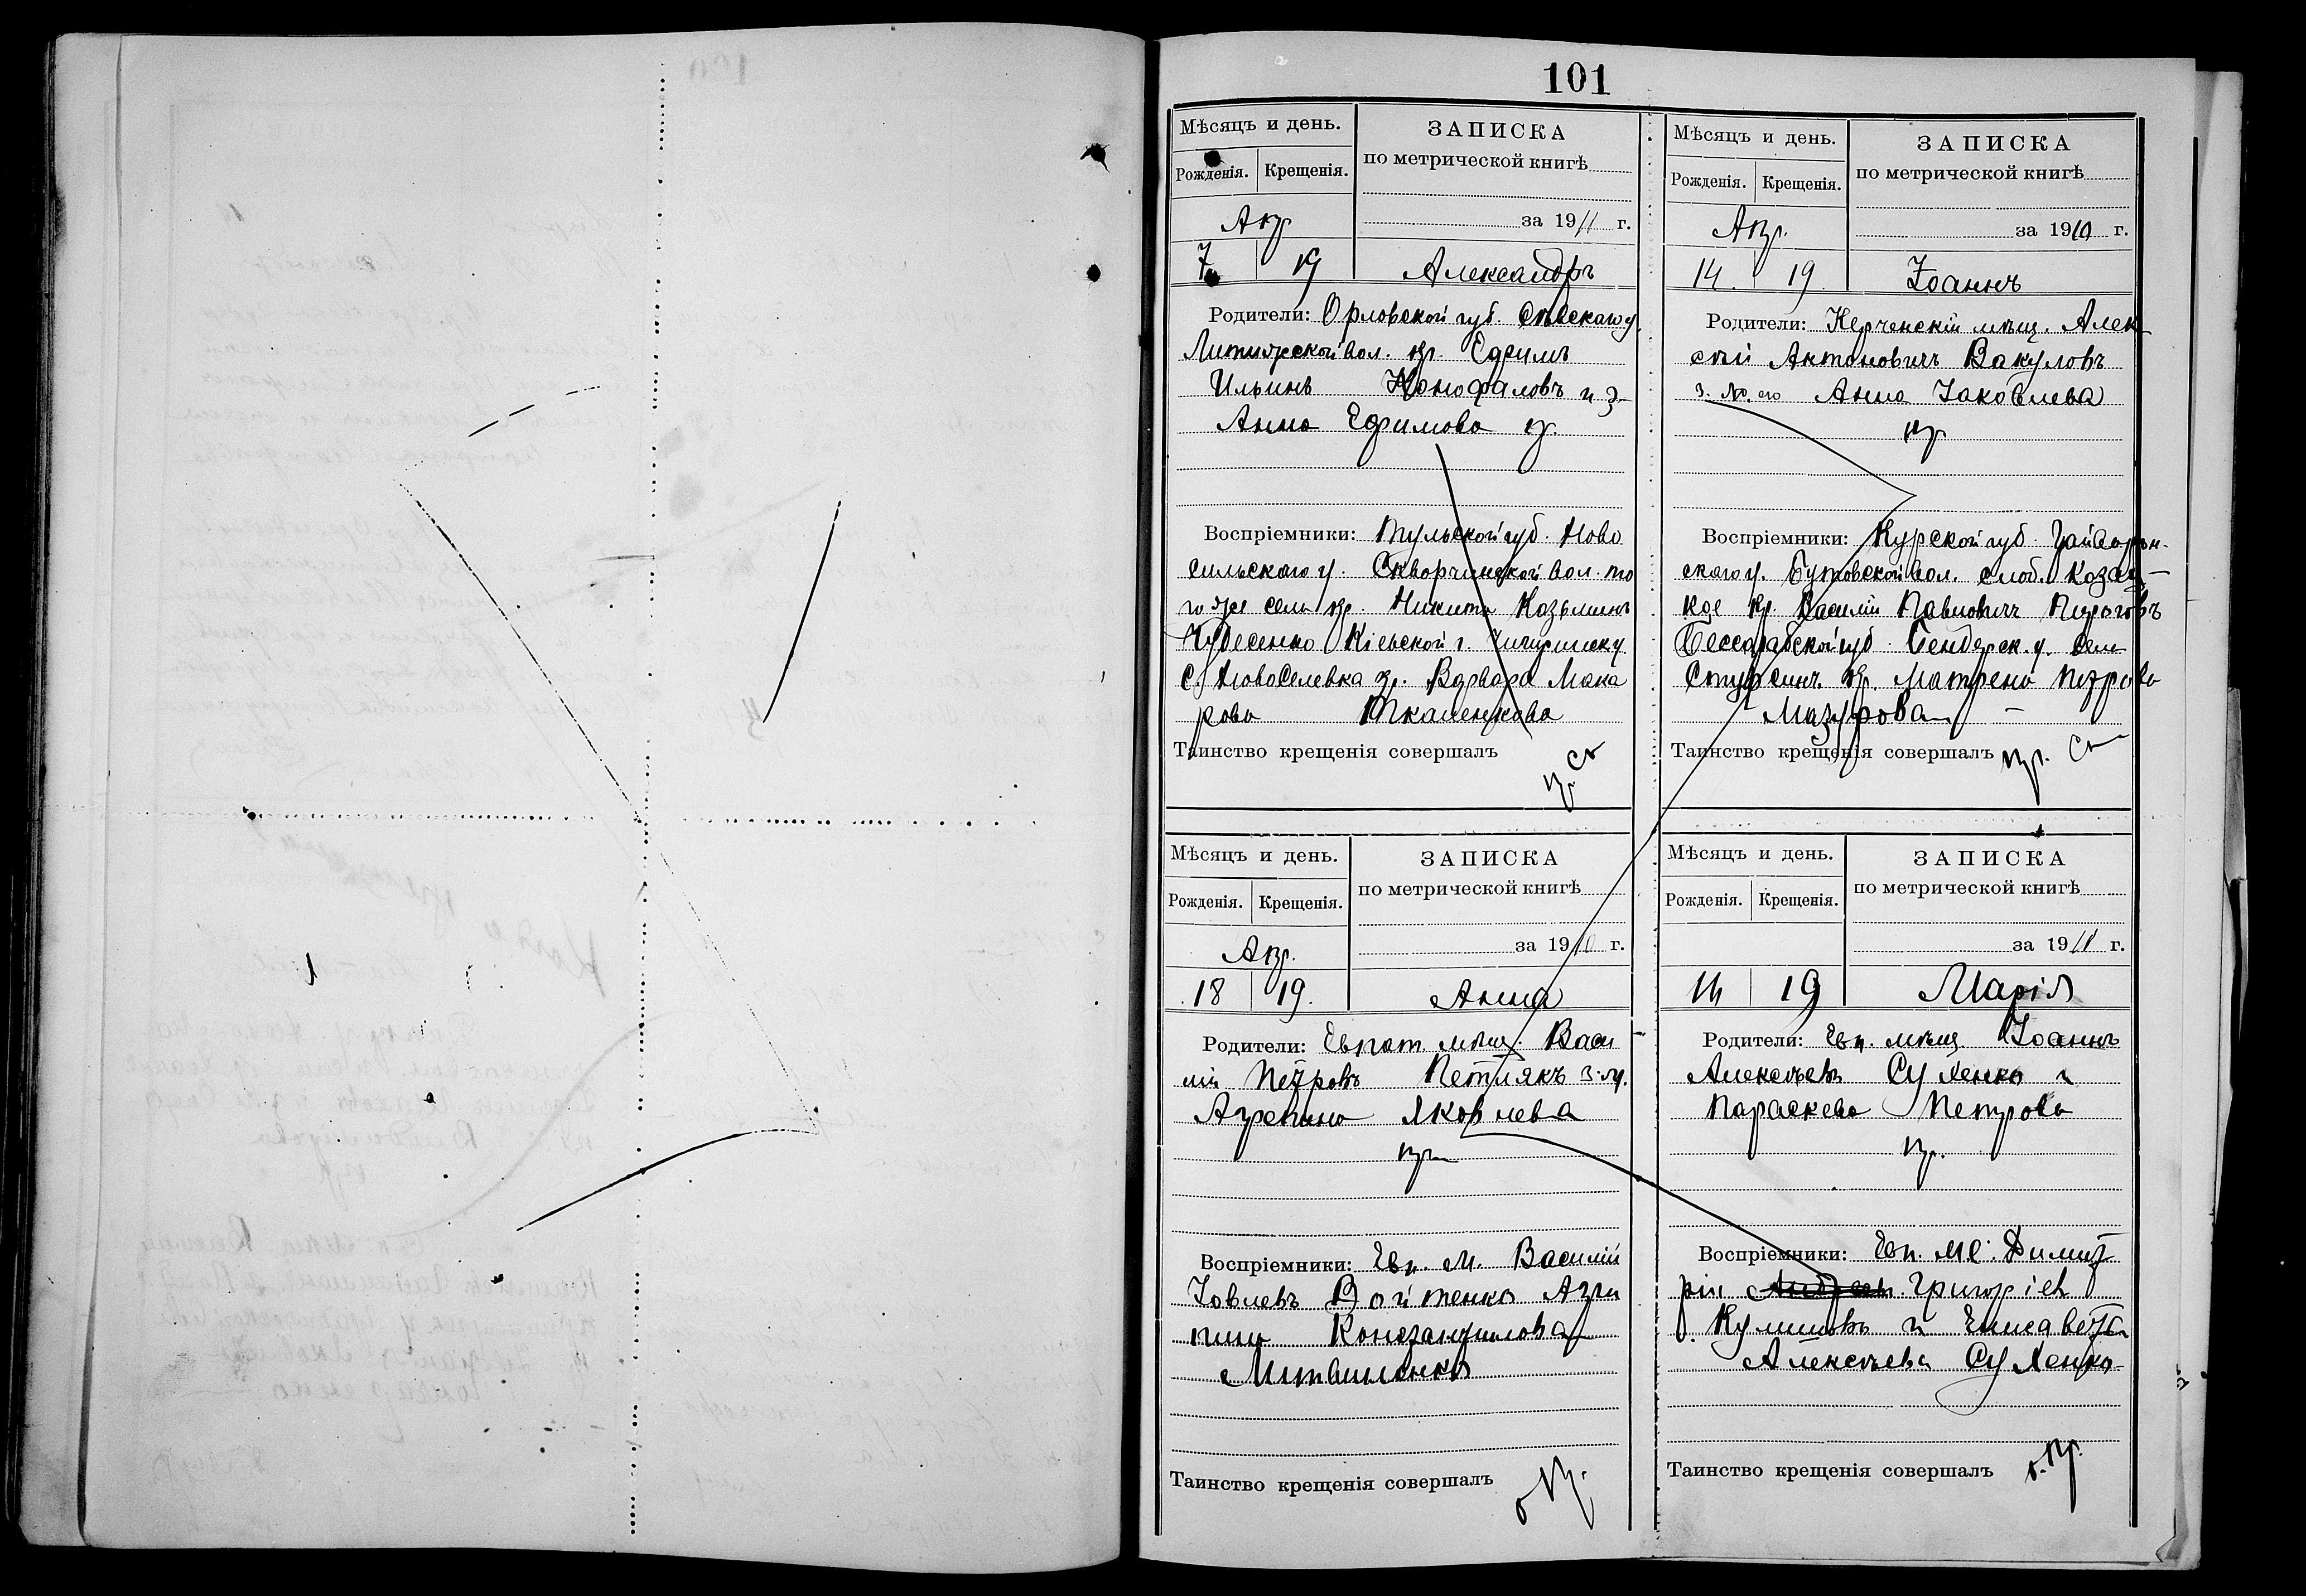 101
Мѣсяцъ и день.
Рожденія. Крещенія.
ЗАПИСКА
по метрической книгѣ
Апр
за 1911 г.
7 19 Александръ
Родители: Орловской губ. Сѣвскаго у.
вол. кр. Ефимъ
Ильинъ и з.
Анна Ефимова
Воспріемники: Тульской губ. Ново
сильскаго у. Скворчинской вол. то
го же села кр. Никита Козьминъ
Кіевской г.
с. Новоселевка Варвара Мака
рова Ткаченкова
Таинство крещенія совершалъ
Мѣсяцъ и день.
Рожденія. Крещенія.
ЗАПИСКА
по метрической книгѣ
Апр.
за 1910 г.
14 19 Іоаннъ
Родители: Керченскій мѣщ. Алек
сѣй Антоновичъ Вакуловъ
з. его Анна Іаковлева
пр
Воспріемники: Курской губ.
скаго у. вол. слоб. Козац
кое кр. Василій Павловичъ Пироговъ
Бессарабской губ. Бендерск. у. села
кр. Матрена Петрова
Мазурова
Таинство крещенія совершалъ пр. Св
Мѣсяцъ и день.
Рожденія. Крещенія.
ЗАПИСКА
по метрической книгѣ
Апр.
за 1910 г.
18 19. Анна
Родители: Евпат. мѣщ. Васи
лій Петровъ Петлякъ з. ж.
Агрепина Яковлева
пр
Воспріемники: Евп. м. Василій
Іовлевъ Войтенко Агри
пина
Литвиненко
Таинство крещенія совершалъ
Мѣсяцъ и день.
Рожденія. Крещенія.
ЗАПИСКА
по метрической книгѣ
за 1911 г.
14 19 Марія
Родители: Евп. мѣщ. Іоаннъ
Алексѣевъ Сухенко и
Параскева Петрова
пр.
Воспріемники: Евп. мѣ. Димит
рій Григоріев
и Елисавета
Алексѣева Сухенко
Таинство крещенія совершалъ